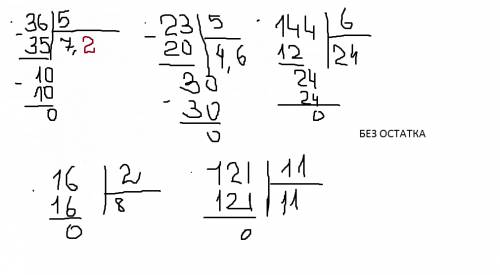 36 5
- 35 7,2
10
- 10
0
23 5
- 20 4,6
30
- 30
0
144 6
12 24
24
24
0
БЕЗ ОСТАТКА
16 2
16 8
0
121 11
121 11
0